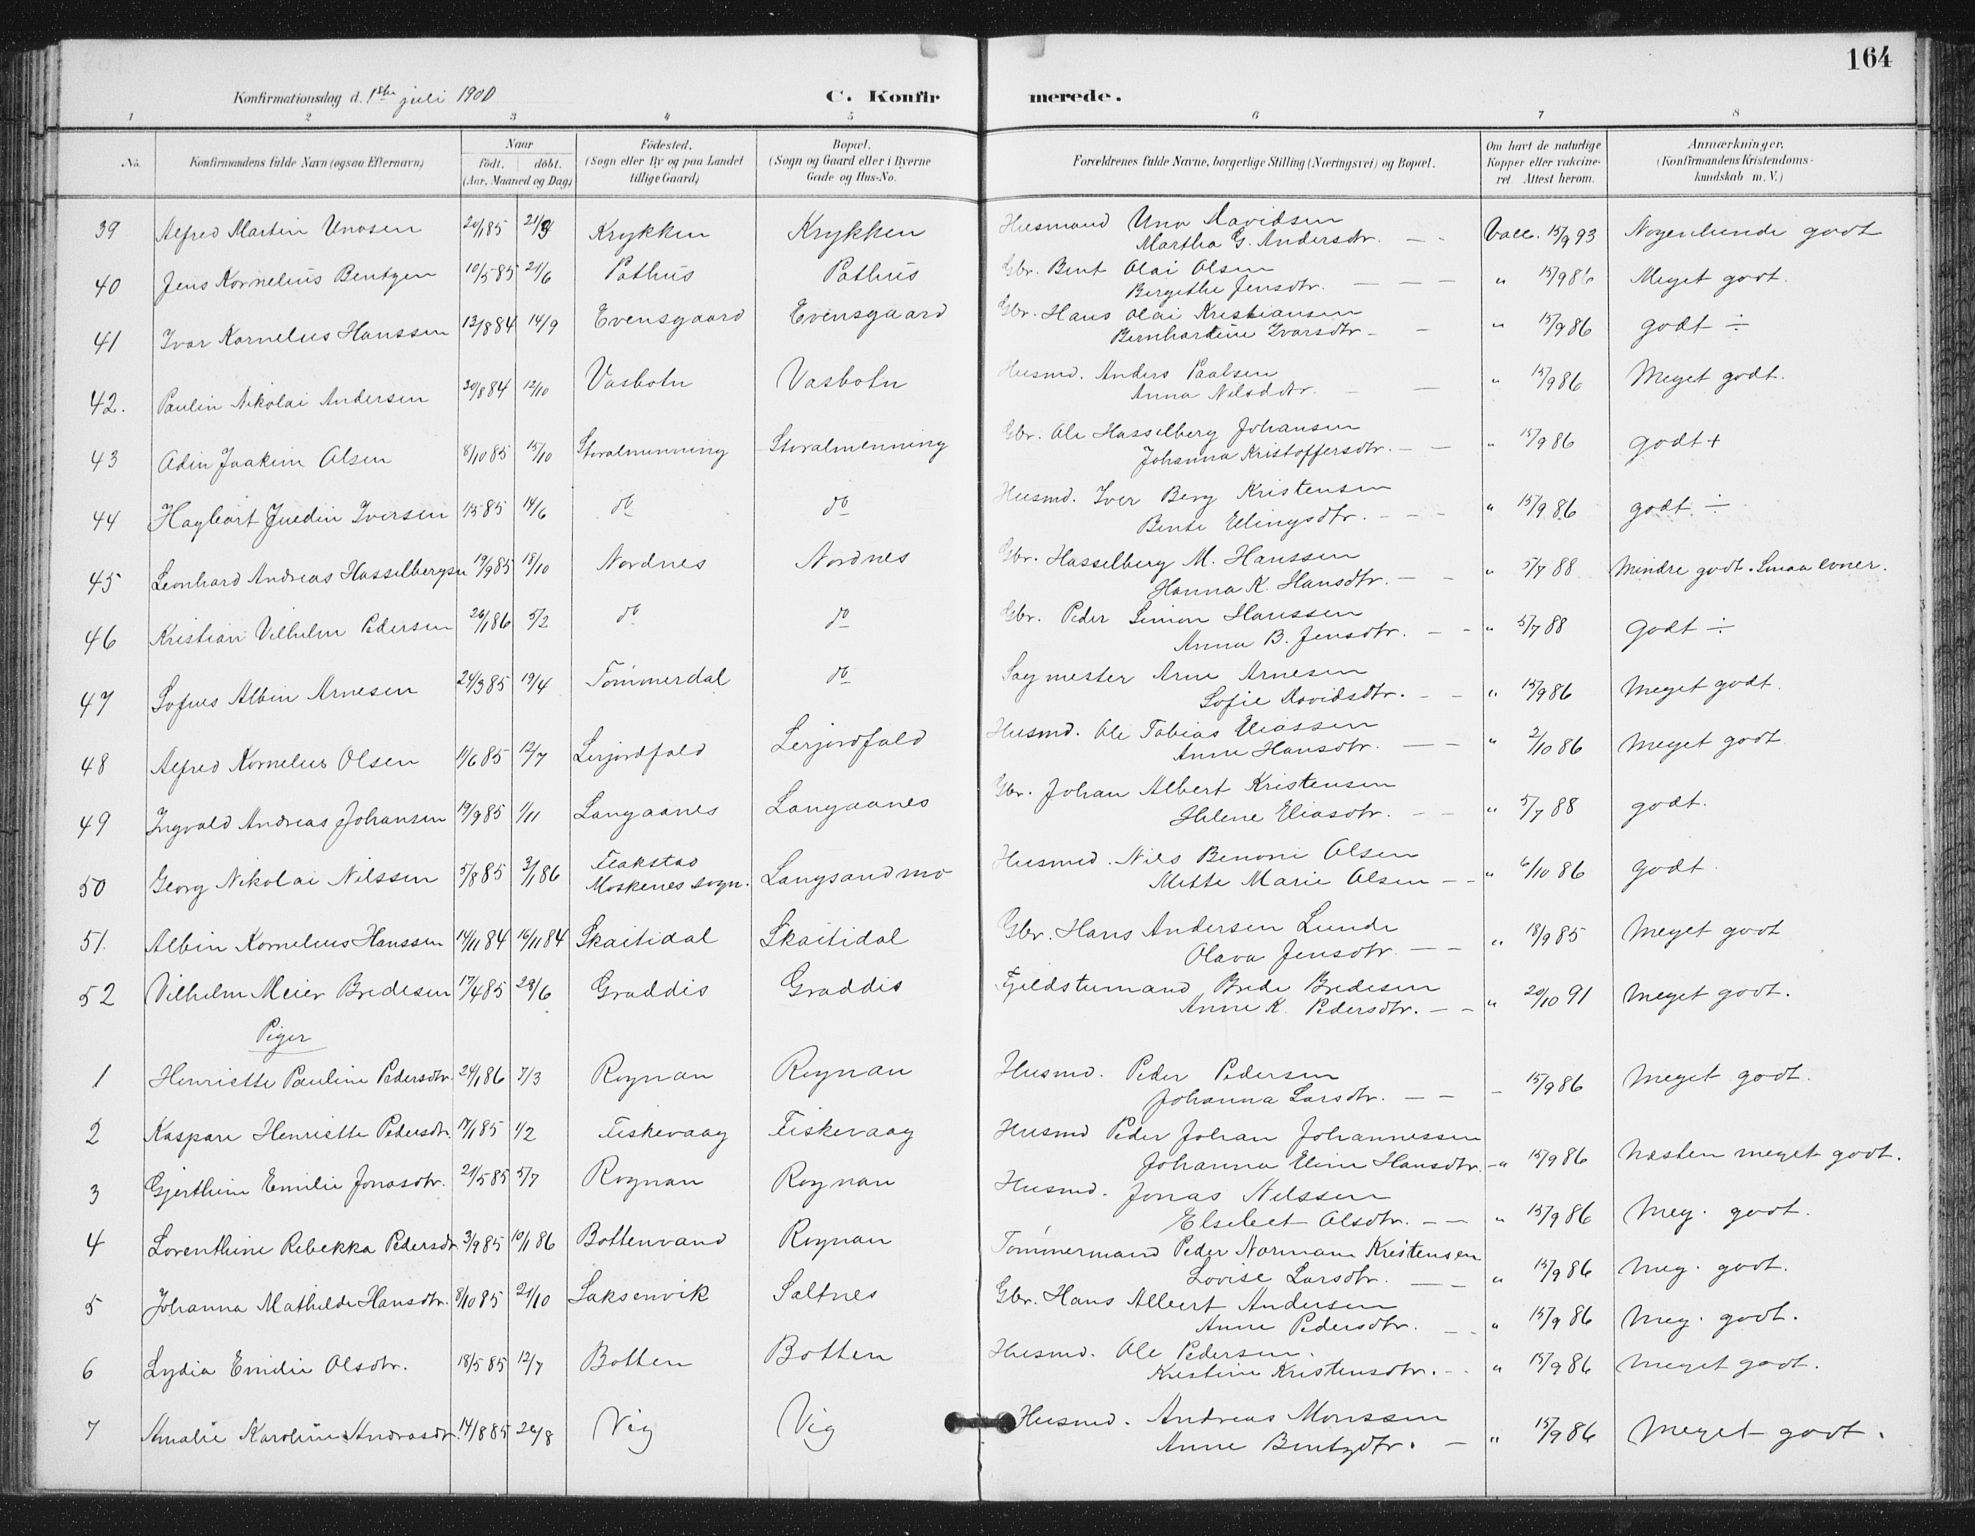 164
Konfirmationsdag d. 1ste juli 1900 C. Konfirmerede.
1 2 3 4 5 6 7 8
No. Konfirmandens fulde Navn (ogsaa Efternavn) Naar født. døbt. (Aar, Maaned og Dag) Fødested. (Sogn eller By og paa Landet tillige Gaard) Bopæl. (Sogn og Gaard eller i Byerne Gade og Hus-No. Forældrenes fulde Navne, borgerlige Stilling (Næringsvei) og Bopæl. Om havt de naturlige Kopper eller vakcineret. Attest herom. Anmærkninger. (Konfirmandens Kristendomskundskab m. V.)
39 Alfred Martin Unosen 20/1 85 21/3 Krykken Krykken Husmand Uno Davidsen Vacc. 15/9 93 Nogenlunde godt
Martha G. Andersdtr. — -
40 Jens Kornelius Bentzen 10/5 85 21/6 Pothus Pothus Gbr. Bent Olai Olsen " 15/9 86 Meget godt.
Bergithe Jensdtr. — — —
41 Ivar Kornelius Hanssen 13/8 84 14/9 Evensgaard Evensgaard Gbr. Hans Olai Kristiansen " 15/9 86 godt ÷
Bernhardine Ivarsdtr — —
42. Paulin Nikolai Andersen 30/8 84 12/10 Vasbotn Vasbotn Husmd. Anders Paalsen " 15/9 86 Meget godt.
Anna Nilsdtr. — —
43 Odin Joakim Olsen 8/10 85 15/10 Storalmenning Storalmenning Gbr. Ole Hasselberg Johansen " 15/9 86 godt +
Johanna Kristoffersdtr. — —
44 Hagbart Juedin Iversen 1/5 85 14/6 do do Husmd. Iver Berg Kristensen " 15/9 86 godt ÷
Bente Ellingsdtr. - - -
45 Leonhard Andreas Hasselbergsen 19/9 85 18/10 Nordnes Nordnes Gbr. Hasselberg M. Hanssen " 5/7 88 Mindre godt. Smaa evner.
Hanna K. Hansdtr. — -
46 Kristian Vilhelm Pedersen 26/1 86 5/2 do do Gbr. Peder Simon Hanssen " 5/7 88 godt ÷
Anna B. Jensdtr. — -
47 Sofus Albin Arnesen 24/3 85 19/4 Tømmerdal do Sagmester Arne Arnesen " 15/9 86 Meget godt.
Sofie Davidsdtr. - -
48 Alfred Kornelius Olsen 11/6 85 12/7 Lerjordfald Lerjordfald Husmd. Ole Tobias Eliassen " 2/10 86 Meget godt
Anne Hansdtr. — —
49 Ingvald Andreas Johansen 19/9 85 1/11 Langaanes Langaanes Gbr. Johan Albert Kristensen " 5/7 88 godt.
Helene Eliasdtr. — —
50 Georg Nikolai Nilssen 5/8 85 3/1 86 Flakstad Moskenes sogn. Langsandmo Husmd. Nils Benoni Olsen " 6/10 86 godt.
Mette Marie Olsen — -
51. Albin Kornelius Hanssen 14/11 84 16/11 84 Skaitidal Skaitidal Gbr. Hans Andersen Lunde " 18/9 85 Meget godt
Olava Jensdtr. — —
52 Vilhelm Meier Bredesen 17/4 85 28/6 Graddis Graddis Fjeldstuemand Brede Bredesen " 20/10 91 Meget godt.
Anne K. Pedersdtr. — —
Piger
1 Henriette Pauline Pedersdtr. 24/1 86 7/3 Rognan Rognan Husmd. Peder Pedersen - 15/9 86 Meget godt.
Johanna Larsdtr. — —
2 Kaspara Henriette Pedersdtr. 17/1 85 1/2 Fiskevaag Fiskevaag Husmd Peder Johan Johannessen
Johanna Eline Hansdtr. - " 15/9 86 Næsten meget godt.
3 Gjerthine Emilie Jonasdtr. 21/5 85 5/7 Rognan Rognan Husmd. Jonas Nilssen
Elsebet Olsdtr. — — " 15/9 86 Meg. godt.
4 Lorenthine Rebekka Pedersdtr 3/9 85 10/1 86 Bottenvand Rognan Tømmermand Peder Normann Kristensen
Lovise Larsdtr. — — " 15/9 86 Meg. godt.
5 Johanna Mathilde Hansdtr. 8/10 85 21/10 Saksenvik Saltnes Gbr. Hans Albert Andersen
Anne Pedersdtr. — - " 15/9 86 Meg. godt.
6 Lydia Emilie Olsdtr. 18/5 85 12/7 Botten Botten Husmd. Ole Pedersen. " 15/9 86 Meget godt.
Kristine Kristensdtr. - -
7 Amalie Karoline Andreasdtr. 14/8 85 20/8 Vig Vig Husmd. Andreas Monssen " 15/9 86 Meget godt.
Anne Bentzdtr. —